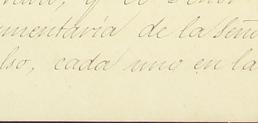 y el Señor
mentaría de la Seño
lso, cada uno en la